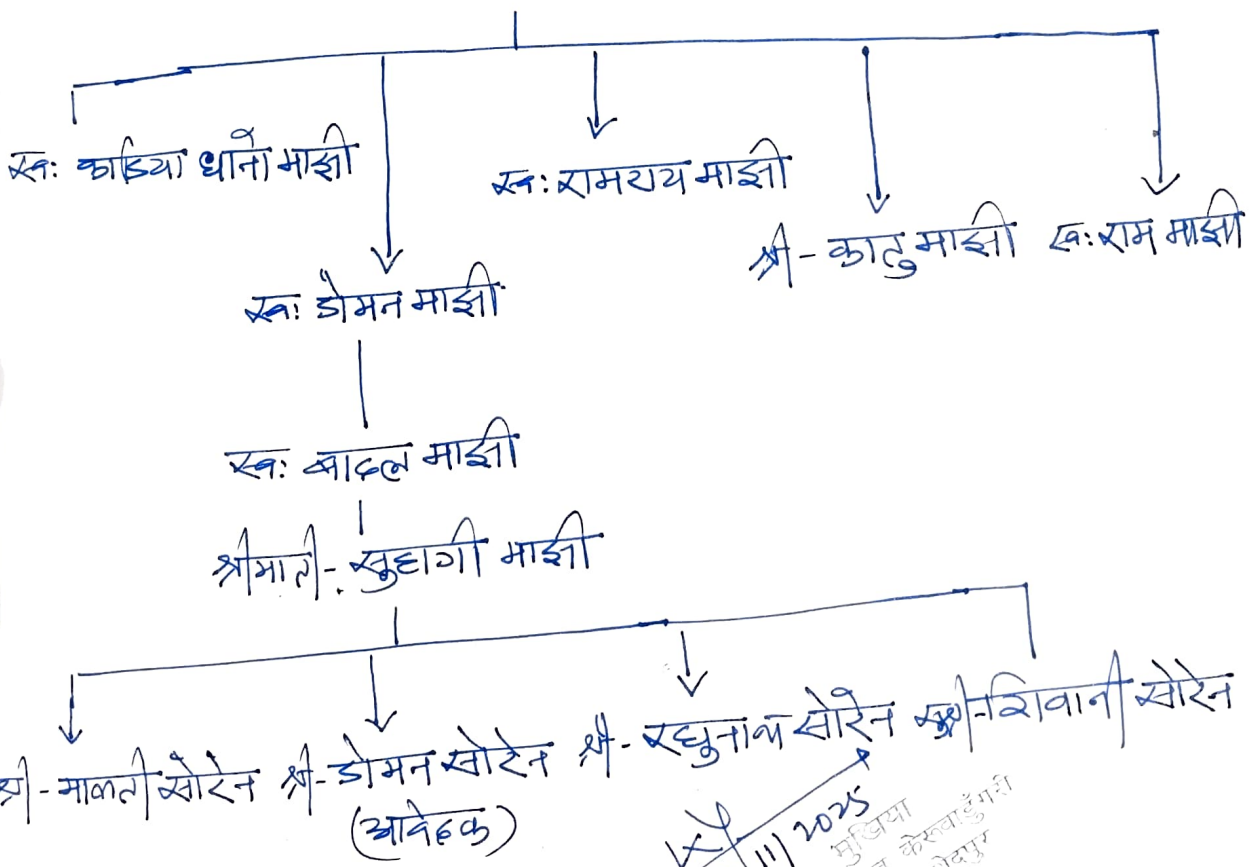 स्व: काडिया धानो माझी
स्व: रामराय माझी
श्री - काटु माझी
स्व: राम माझी
स्व: डोमन माझी
स्व: बादल माझी
श्रीमति - सुहागी माझी
श्री - मालती सोरेन
श्री - डोमन सोरेन
(आवेदक)
श्री - रघुनाथ सोरेन
सुश्री - शिवानी सोरेन
11/2025
मुखिया